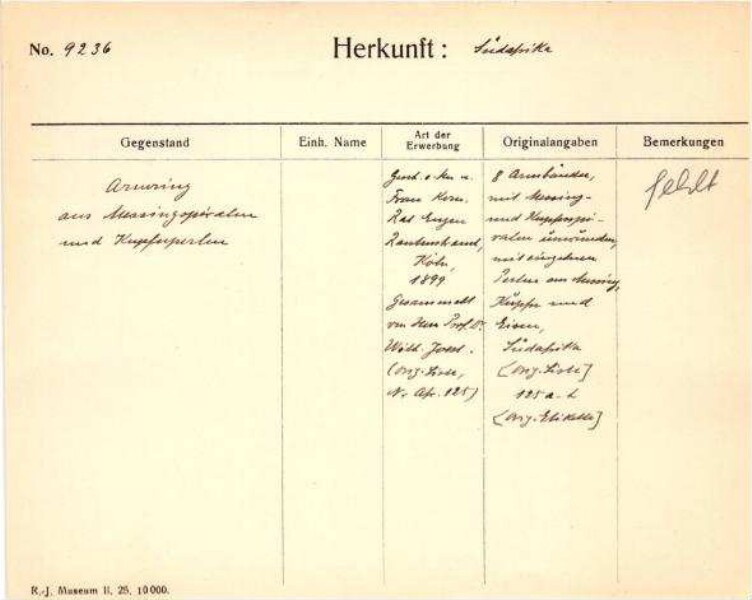 No. 9236
Herkunft: Südafrika
Gegenstand
Einh. Name
Art der
Erwerbung
Originalangaben
Bemerkungen
Armring
aus Messingspiralen
und Kupferperlen
Gesch. v. Hrn u.
Frau Kom.
Rat Eugen
Rautenstrauch,
Köln,
1899
Gesammelt
von Herr Prof. Dr.
Wilh. Joest.
(Orig. Liste,
Nr. Afr. 125)
8 Armbänder,
mit Messing-
und Kupferspi-
ralen umwunden,
mit einzelnen
Perlen aus Messing,
Kupfer und
Eisen,
Südafrika
[Orig. Liste]
125 a-h
[Orig. Etikette]
fehlt
R.-J. Museum II. 25. 10000.